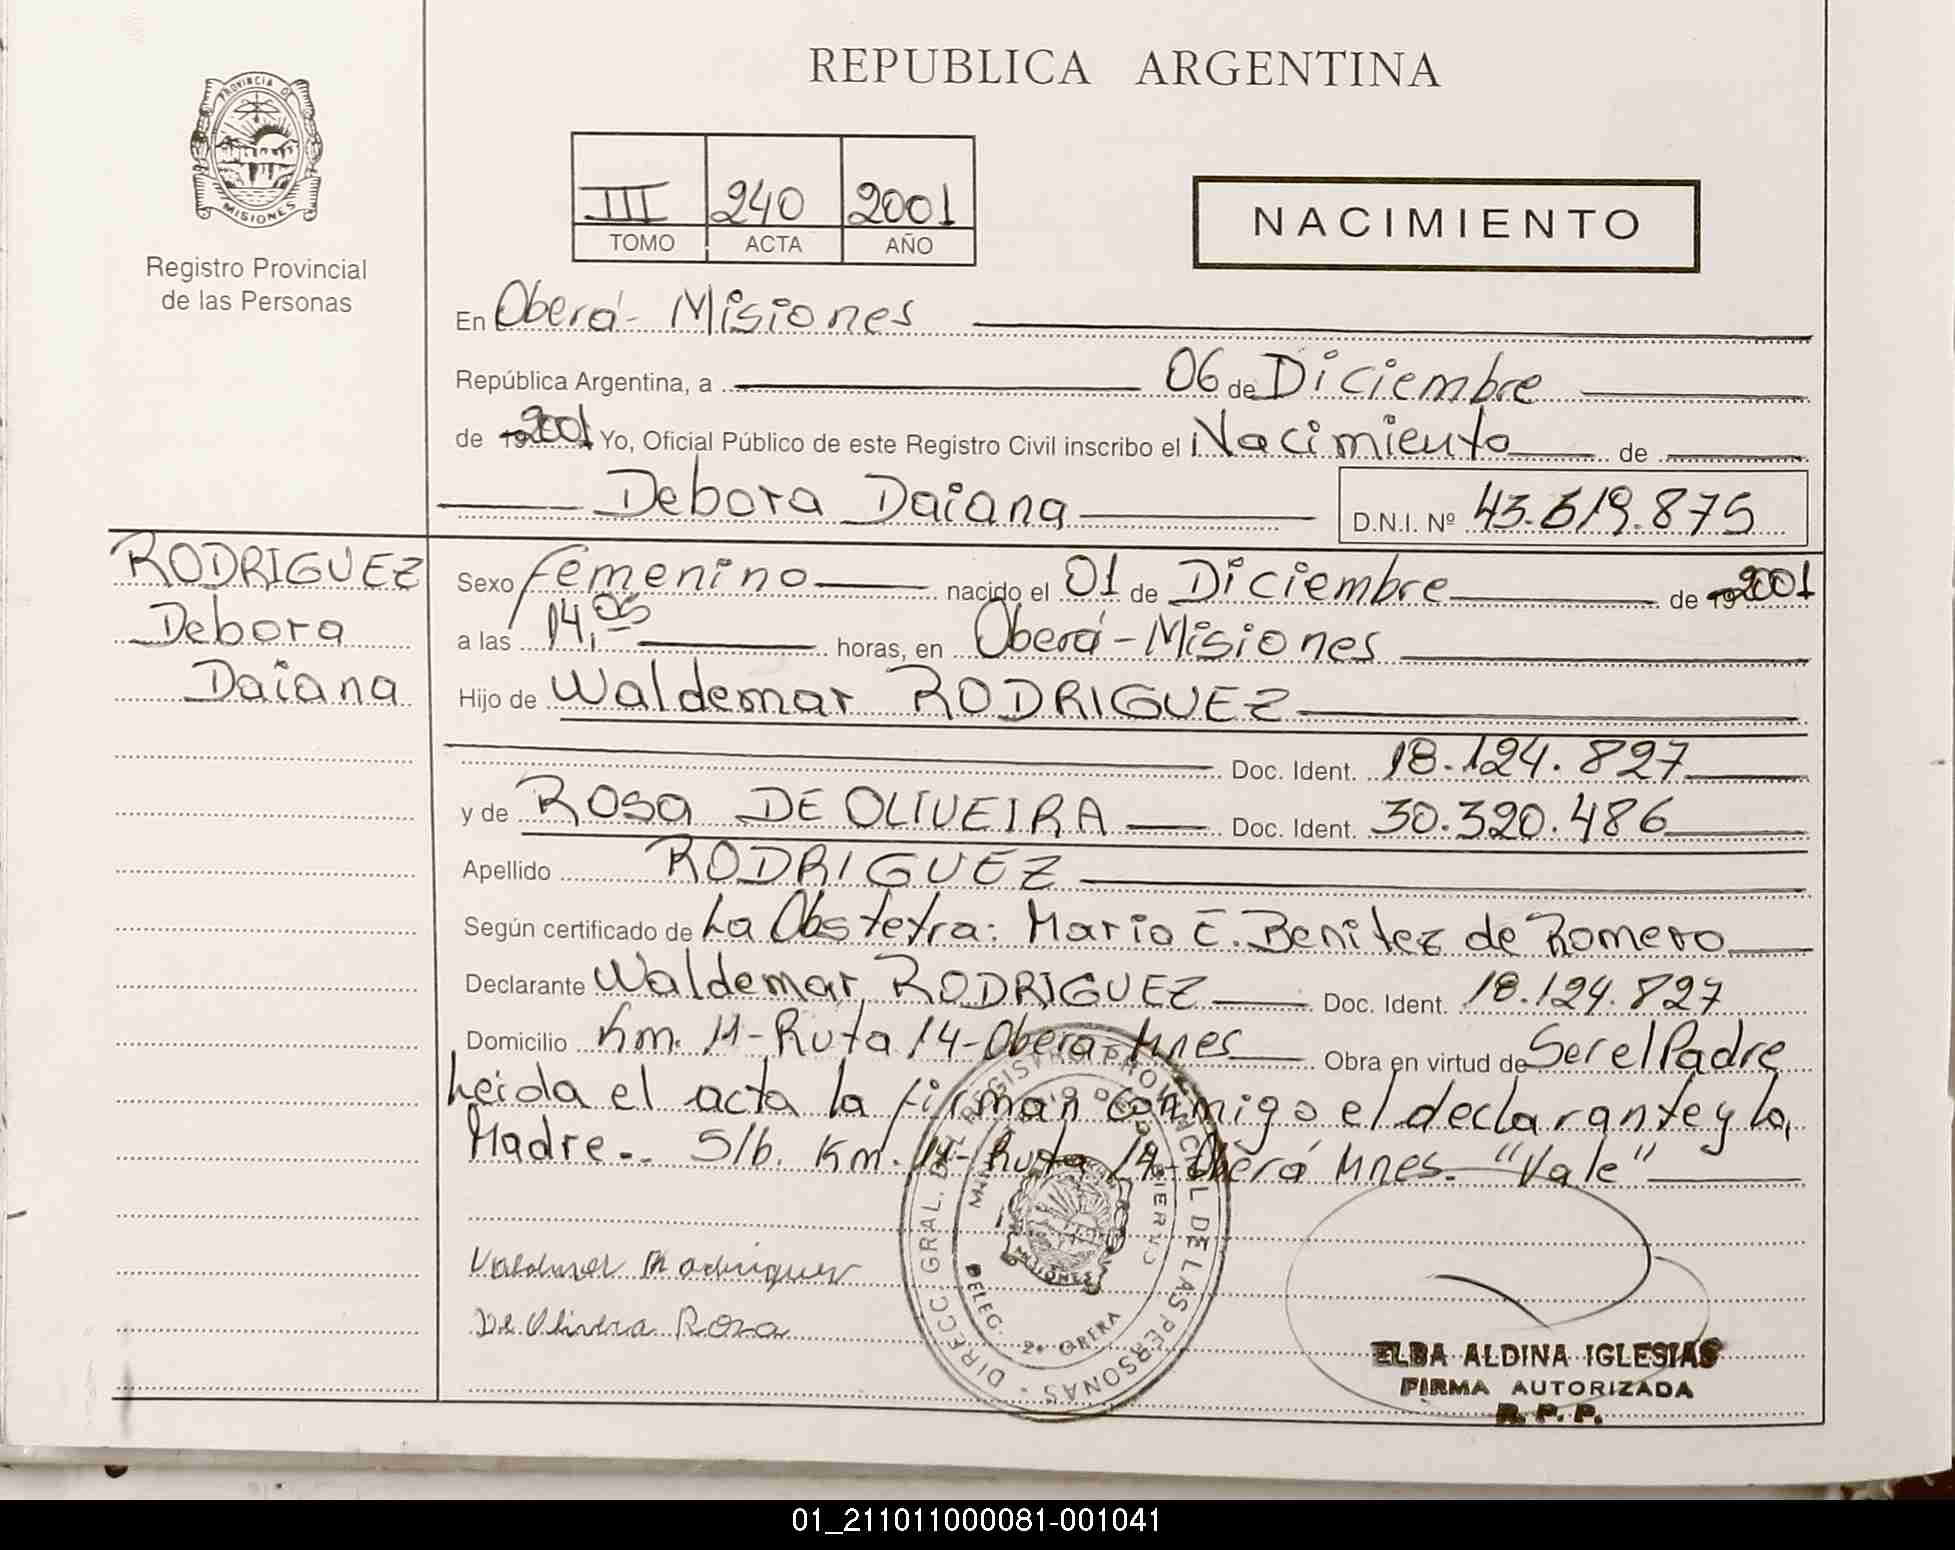 REPUBLICA ARGENTINA
PROVINCIA DE
MISIONES
Registro Provincial
de las Personas
III 240 2001
TOMO ACTA AÑO
NACIMIENTO
En Oberá - Misiones
República Argentina, a 06 de Diciembre
de 19 2001 Yo, Oficial Público de este Registro Civil inscribo el Nacimiento de
Debora Daiana D.N.I. Nº 43.619.875
RODRIGUEZ
Debora
Daiana
Sexo femenino nacido el 01 de Diciembre de 19 2001
a las 14,05 horas, en Oberá - Misiones
Hijo de Waldemar RODRIGUEZ
Doc. Ident. 18.124.827
y de Rosa DE OLIVEIRA Doc. Ident. 30.320.486
Apellido RODRIGUEZ
Según certificado de La Obstetra: Maria E. Benitez de Romero
Declarante Waldemar RODRIGUEZ Doc. Ident. 18.124.827
Domicilio Km. 11 - Ruta 14 - Obera - Mnes Obra en virtud de Ser el Padre
Leida el acta la firman conmigo el declarante y la
Madre.- S/b. Km. 11 - Ruta 14 - Oberá Mnes. "Vale"
Waldemar Rodriguez
De Olivera Rosa
DIRECC. GRAL. DEL REGISTRO PROVINCIAL DE LAS PERSONAS
DELEG. 2ª OBERA
MISIONES
ELBA ALDINA IGLESIAS
FIRMA AUTORIZADA
R. P. P.
01_211011000081-001041